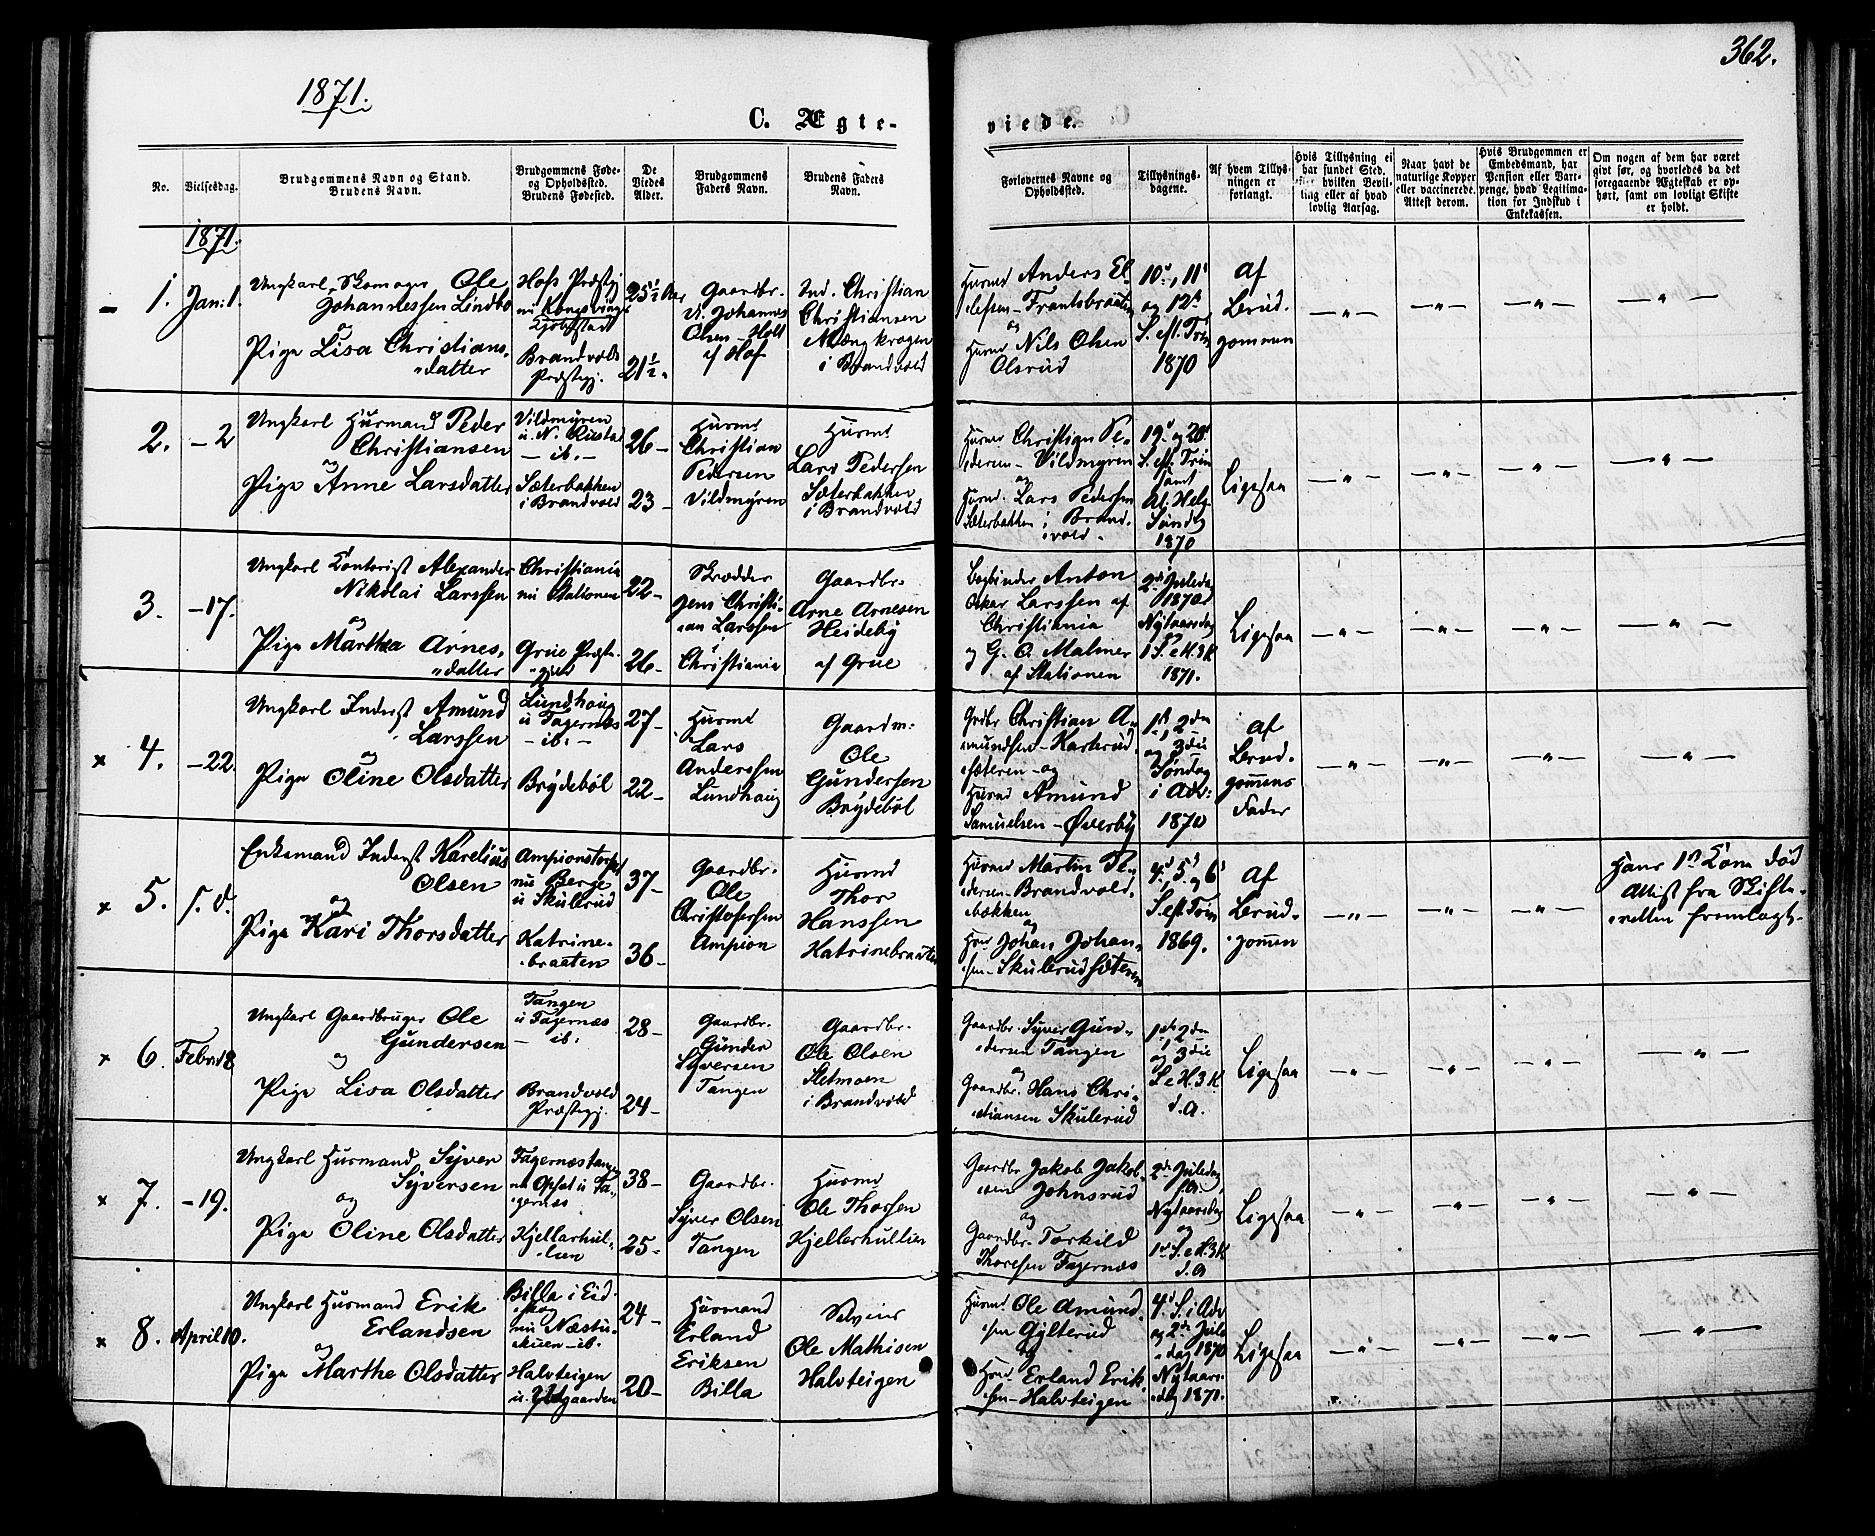 362.
1871.
C. Ægte-
viede.
No.
Vielsesdag.
Brudgommens Navn og Stand.
Brudens Navn.
Brudgommens Føde-
og Opholdssted.
Brudens Fødested.
De
Viedes
Alder.
Brudgommens
Faders Navn.
Brudens Faders
Navn.
Forlovernes Navne og
Opholdssted.
Tillysnings-
dagene.
Af hvem Tillys-
ningen er
forlangt.
Hvis Tillysning ei
har fundet Sted,
hvilken Bevil-
ling eller af hvad
lovlig Aarsag.
Naar havt de
naturlige Kopper
eller vaccinerede.
Attest derom.
Hvis Brudgommen er
Embedsmand, har
Pension eller Vart-
penge, hvad Legitima-
tion for Indskud i
Enkekassen.
Om nogen af dem har været
givt før, og hvorledes da det
foregaaende Ægteskab er op-
hørt, samt om lovligt Skifte
er holdt.
1871.
1.
Jan: 1.
Ungkarl Skomager Ole
Johannessen Lindbo
og
Pige Lisa Christians-
datter
Hofs Præstgj
nu Kongsvinger
Kjøbstad
Brandvold
Præstegj.
25½ Aar
21½ -
Gaardbr.
Johannes
Olsen Holt
af Hof
Ind. Christian
Christiansen
Mængkrogen
i Brandvold
Husmd Anders El-
lefsen - Frantsbraaten
og
Husmd Nils Olsen
Olsrud
10d, 11t
og 12te
S. eft. Trin
1870
af
Brud-
gommen
— " — — " — — " — — " —
2.
-2
Ungkarl Husmand Peder
Christiansen
og
Pige Anne Larsdatter
Vildmyren
u. N. Rustad
- ib. -
Sæterbakken
i Brandvold
26 -
23 -
Husmd
Christian
Pedersen
Vildmyren
Husmd
Lars Pedersen
Sæterbakken
i Brandvold
Husmd Christian Pe-
dersen - Vildmyren
og
Husmd. Lars Pedersen
Sæterbakken i Brand-
vold.
19d og 20d
S. eft. Trin
samt
Al. Helg
Søndg
1870
Ligesaa
— " — — " — — " — — " —
3.
-17.
Ungkarl Kontorist Alexander
Nikolai Larssen
og
Pige Martha Arnes-
datter
Christiania
nu Stationen
Grue Præste-
gjeld
22 -
26 -
Skrædder
Jens Christi-
an Larssen
Christiania
Gaardbr.
Arne Arnesen
Heideby
af Grue
Bogbinder Anton
Oskar Larssen af
Christiania
og G. O. Malmer
af Stationen
2den Juledag
1870
Nytaarsdag
1 S. e H.3K
1871.
Ligesaa
— " — — " — — " — — " —
x 4.
-22.
Ungkarl Inderst Amund
Larssen
og
Pige Oline Olsdatter
Lundhaug
u Fagernæs
- ib. -
Brydebøl
27 -
22 -
Husmd
Lars
Anderssen
Lundhaug
Gaardm.
Ole
Gundersen
Brydebøl
Grdbr Christian A-
mundsen - Karterud
sæteren - og
Husmd Amund
Samuelsen - Øverby
1st, 2den
og 3die
Søndag
i Adv:
1870
af
Brud-
gommens
Fader
— " — — " — — " — — " —
x 5.
s. d.
Enkemand Inderst Karelius
Olsen
og
Pige Kari Thorsdatter
Ampionstorpet
nu Berge
u Skulerud
Katrine-
braaten
37 -
36 -
Gaardbr.
Ole
Christofersen
Ampion
Husmd
Thor
Hanssen
Katrinebraaten
Husmd Martin Pe-
dersen - Brandvold-
bækken
og
Hmd Johan Johan-
sen - Skulerudsæteren
4d, 5t og 6t
S. eft Trin
1869.
af
Brud-
gommen
— " — — " — — " —
Hans 1st Kone død
Attest fra Skifte-
retten fremlagt.
x 6.
Febr 18
Ungkarl Gaardbruger Ole
Gundersen
og
Pige Lisa Olsdatter
Tangen
u Fagernæs
- ib. -
Brandvold
Præstegj.
28 -
24 -
Gaardbr.
Gunder
Syversen
Tangen
Gaardbr.
Ole Olsen
Sletmoen
i Brandvold
Gaardbr. Syver Gun-
dersen Tangen
og
Gaardbr. Hans Chri-
stiansen Skulerud
1st, 2den
og 3die
S. e H.3K.
d. A.
Ligesaa
— " — — " — — " — — " —
x 7.
-19.
Ungkarl Husmand Syver
Syversen
og
Pige Oline Olsdatter
Fagernæstangen
nu Opsat u Fa-
gernæs
Kjellerhul-
lien
38 -
25 -
Gaardbr.
Syver Olsen
Tangen
Husmd
Ole Thorsen
Kjellerhullien
Gaardbr Jakob Jakob-
sen Johnsrud
og
Gaardbr. Torkild
Thoresen Fagernæs
2den Juledag
f.A.
Nytaarsdag
og
1st S. e H.3K
d. A
Ligesaa
— " — — " — — " — — " —
x 8.
April 10.
Ungkarl Husmand Erik
Erlandsen
og
Pige Marthe Olsdatter
Billa i Eid-
skog
nu Næstu-
skuen - ib.
Halvteigen
24 -
20 -
Husmand
Erland
Eriksen
Billa
Selveier
Ole Mathisen
Halvteigen
Husmd. Ole Amund-
sen Gylterud
og
Hmd Erland Erik-
sen - Halvteigen
4d S. i Adv
og 2den Jule
dag 1870
Nytaars-
dag 1871.
Ligesaa
— " — — " — — " — — " —